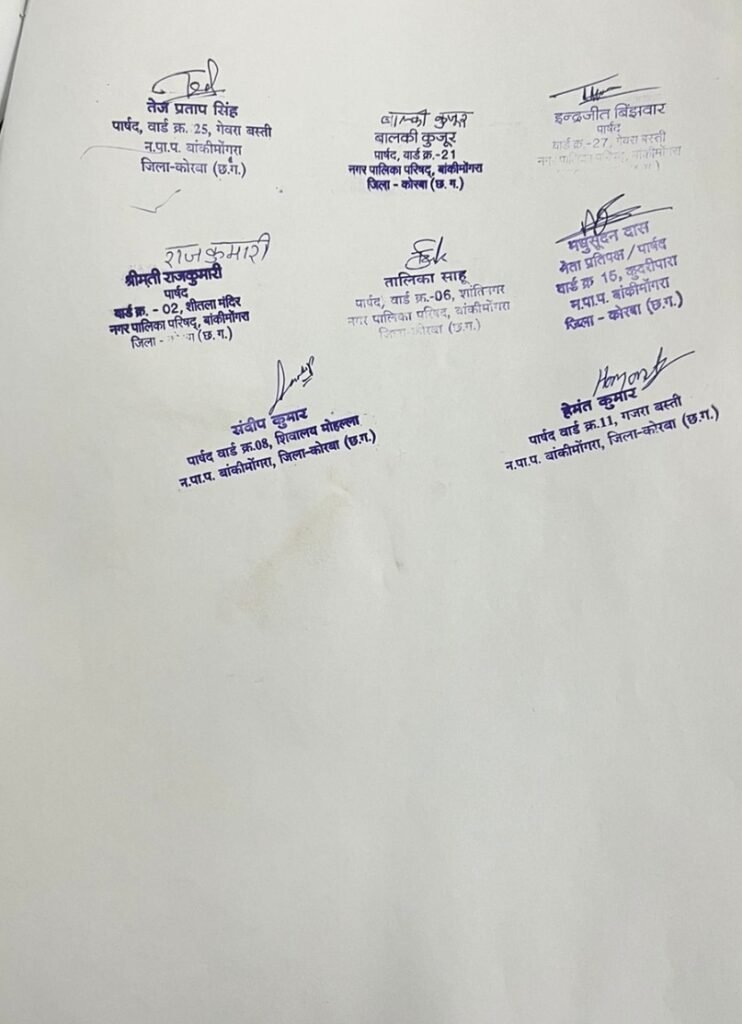 तेज प्रताप सिंह
पार्षद, वार्ड क्र. 25, गेवरा बस्ती
न.पा.प. बांकीमोंगरा
जिला-कोरबा (छ.ग.)
बालकी कुजूर
बालकी कुजूर
पार्षद, वार्ड क्र.-21
नगर पालिका परिषद्, बांकीमोंगरा
जिला - कोरबा (छ. ग.)
इन्द्रजीत बिंझवार
पार्षद
वार्ड क्र.-27, गेवरा बस्ती
नगर पालिका परिषद, बांकीमोंगरा
राजकुमारी
श्रीमती राजकुमारी
पार्षद
वार्ड क्र. - 02, शीतला मंदिर
नगर पालिका परिषद्, बांकीमोंगरा
जिला - कोरबा (छ.ग.)
तालिका साहू
पार्षद, वार्ड क्र.-06, शांतिनगर
नगर पालिका परिषद, बांकीमोंगरा
जिला-कोरबा (छ.ग.)
मधुसूदन दास
नेता प्रतिपक्ष / पार्षद
वार्ड क्र 15, कुदरीपारा
न.पा.प. बांकीमोंगरा
जिला - कोरबा (छ.ग.)
संदीप कुमार
पार्षद वार्ड क्र.08, शिवालय मोहल्ला
न.पा.प. बांकीमोंगरा, जिला-कोरबा (छ.ग.)
हेमंत कुमार
पार्षद वार्ड क्र.11, गजरा बस्ती
न.पा.प. बांकीमोंगरा, जिला-कोरबा (छ.ग.)